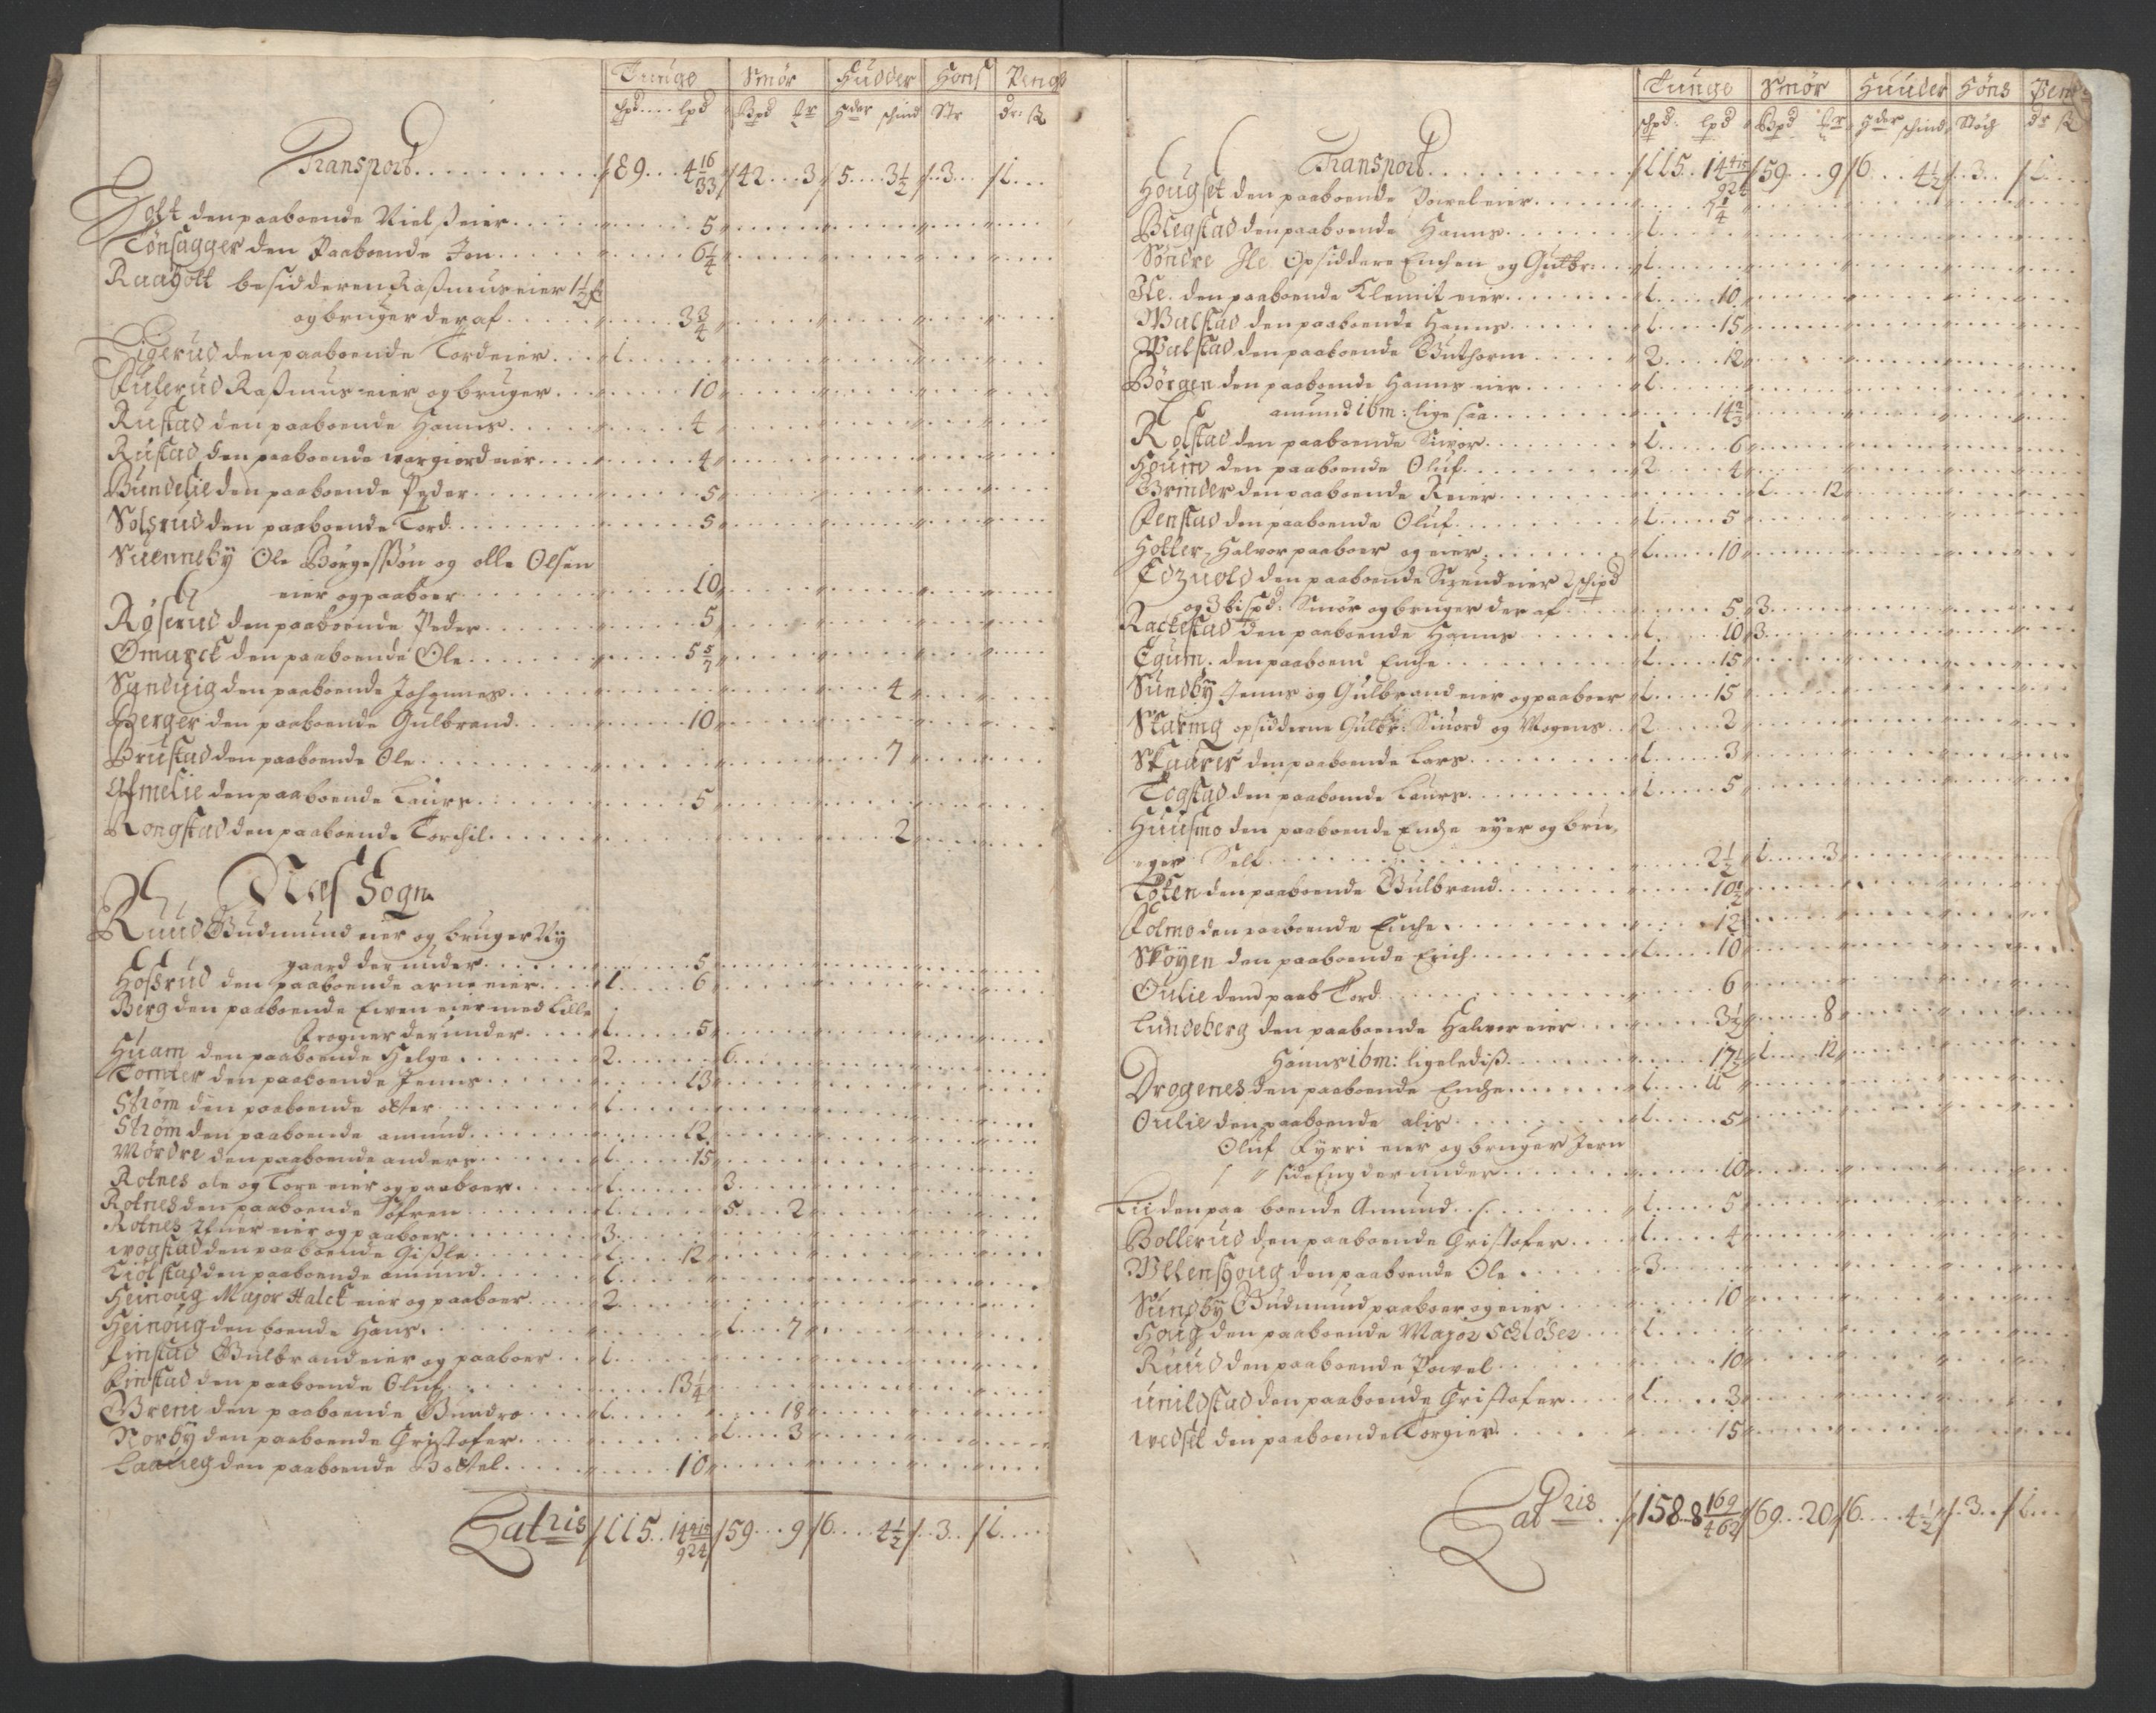 Tunge Smör Hudder Höns Penge
schpd lpd Bpd Hder schind Str dr: ß
Transport 189 4 16/33 42 3 5 3 1/2 3 1
Holt den paaboende Niels eier 5
Tönsagger den Paaboende Jon 6 1/4
Raaholt besidderen Rasmus eier 1 1/2
og bruger der af 3 3/4
den paaboende Tord eier 1
Julerud Rasmus eier og bruger 10
Rustad den paaboende Hanns 4
Rustad den paaboende eier 4
Bundelie den paaboende Peder 5
Solsrud den paaboende Tord 5
Suenneby Ole Börgessön og olle Olsen
eier og paaboer 10
Röserud den paaboende Peder 5
Ömarck den paaboende Ole 5 5/7
Synduig den paaboende Johannes 4
Berger den paaboende Gulbrand 10
Brustad den paaboende Ole 7
den paaboende Laurs 5
Rongstad den paaboende Torchil 2
Næs Sogn
Ruud Gudmund eier og bruger Ny
gaard der under 5
Hosrud den paaboende arne eier 1 6
Berg den paaboende Even eier med Lille
Frogner der under 1 5
Huam den paaboende Helge 2 6
Tomter den paaboende Jenns 13
Ström den paaboende 1
Ström den paaboende amund 12
Mordre den paaboende anders 1 15
Rotnes ole og Tore eier og paaboer 1 3
Rotnes den paaboende Söfren 1 5 2
Rotnes eier og paaboer 3
wogstad den paaboende Gisle 1 12
Kiölstad den paaboende amund 1
Heinoug Major Halck eier og paaboer 2
Heinoug den boende Hans 1 7
Finstad Gulbrand eier og paaboer 1
Finstad den paaboende Oluf 13 1/4
Greni den paaboende 1 18
Norby den paaboende Cristofer 1 3
Laaueg den paaboende Bottel 10
Lateris 115 14 415/924 59 9 6 4 1/2 3 1
Tunge Smör Huuder Höns Penge
schpd: lpd Bpd Hder schind Stöch dr ß
Transport 115 14 415/924 59 9 6 4 1/2 3 1
Hougset den paaboende Powel eier 5 1/4
Blegstad den paaboende Hanns 1
Söndre Ile Opsiddere Enchen og Gulbr: 1
Ile den paaboende Klemit eier 1 10
Walstad den paaboende Hanns 1 15
Walstad den paaboende Guthorm 2 12
Börgen den paaboende Hanns eier 1
amund ibm: lige saa 14 2/3
Rolstad den paaboende Siwor 1 6
Houin den paaboende Oluf 2 4
Brinder den paaboende Reier 1 12
Jenstad den paaboende Oluf 1 5
Holler Halvor paaboer og eier 1 10
Edzuold den paaboende eier schipd
og 3 bispd: Smör og bruger der af 5 3
Rackestad den paaboende Hanns 1 10 3
Egum den paaboend Enche 1 15
Sundby Jenns og Gulbrand eier og paaboer 1 15
Skaring opsidderne Gulbr: Siuord og Mogens 2 2
Skaarer den paaboende Lars 1 3
Togstad den paaboende Laurs 1 5
Huusmo den paaboende Enche eyer og bru,
ger Self 2 1/2 1 3
Toten den paaboende Gulbrand 10 1/2
Folmo den paaboende Enche 12
Sköyen den paaboende Erich 1 10
Oulie dend paab Tord 6
Lundeberg den paaboende Halvor eier 3 1/2 8
Hanns ibm: ligeledis 17 1/2 1 12
Drogenes den paaboende Enche 1 11
Oulie den paaboende alis 1 5
Oluf Fyrri eier og bruger Jern
side Eng der under 10
Lii den paa boende Amund 1 5
Bollerud den paaboende Cristofer 1 4
Ullenshoug den paaboende Ole 3
Sundby Gudmund paaboer og eier 10
Houg den paaboende Major Schlöser 1
Ruud den paaboende Powel 10
unildstad den paaboende Cristofer 1 3
wedsel den paaboende Torgier 15
Lateris 158 8 169/462 69 20 6 4 1/2 3 1